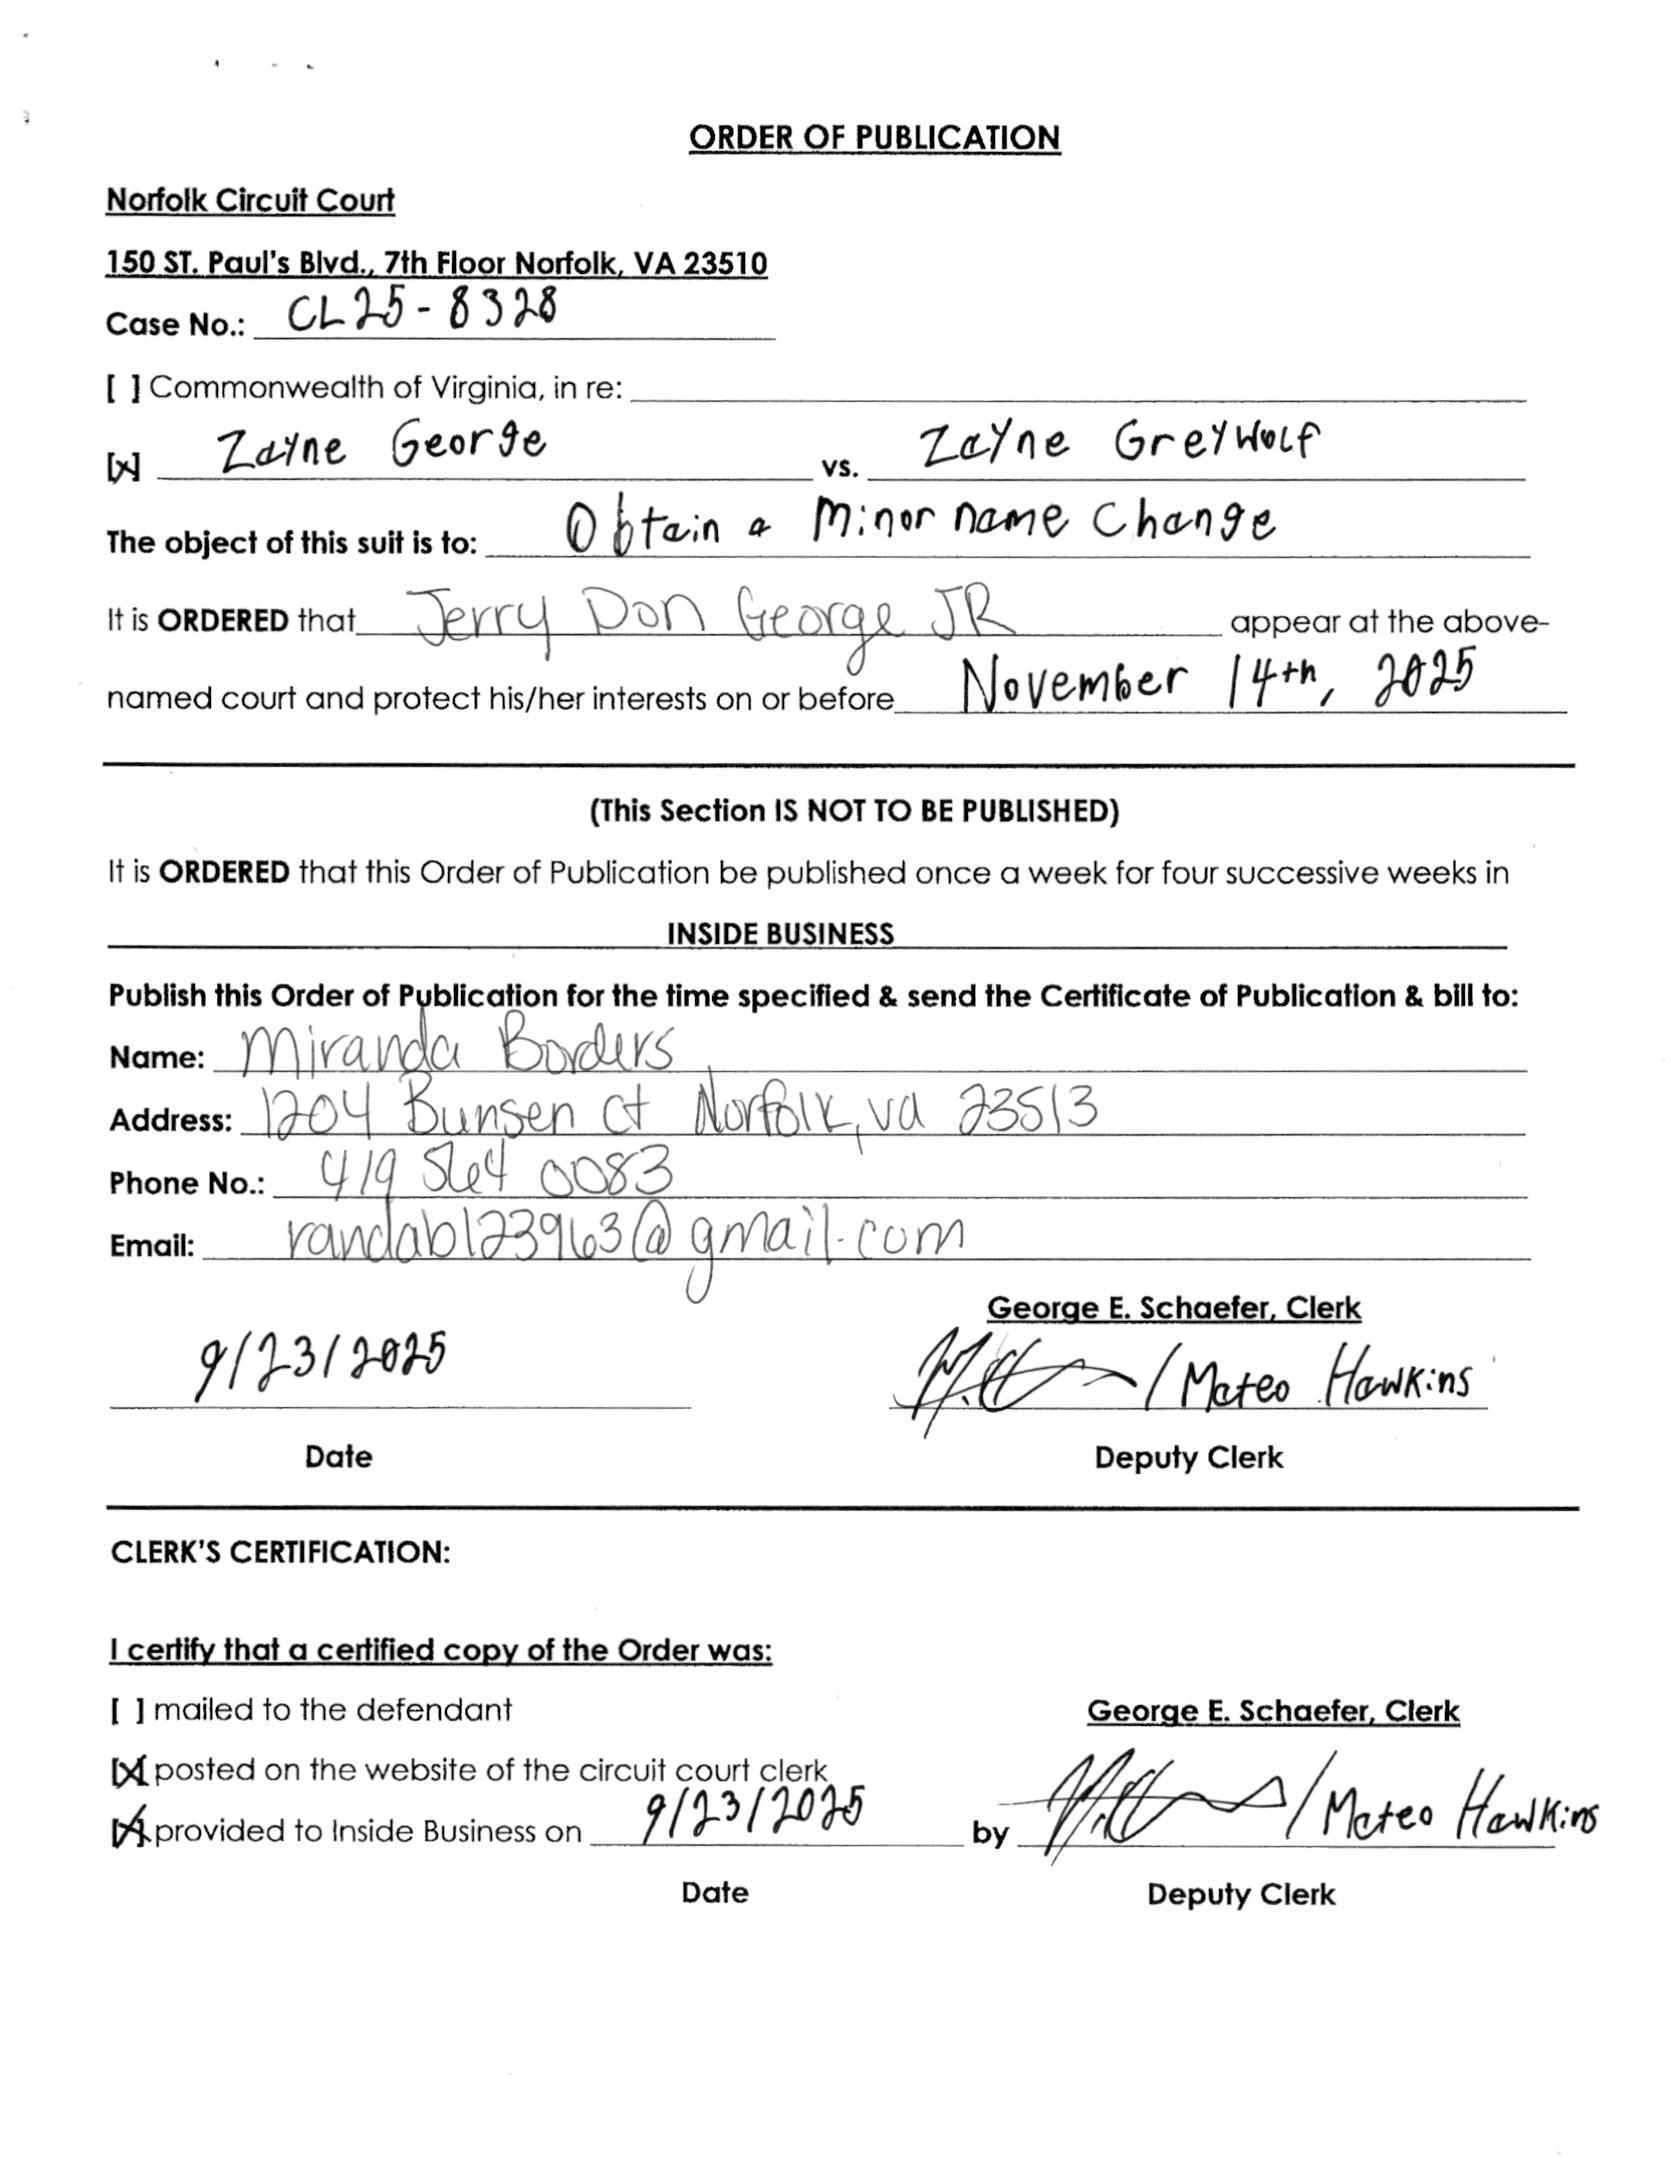 ORDER OF PUBLICATION
Norfolk Circuit Court
150 ST. Paul's Blvd., 7th Floor Norfolk, VA 23510
Case No.: CL25-8328
[ ] Commonwealth of Virginia, in re:
[x] Zayne George vs. Zayne Greywolf
The object of this suit is to: Obtain a minor name change
It is ORDERED that Jerry Don George JR appear at the above-
named court and protect his/her interests on or before November 14th, 2025
(This Section IS NOT TO BE PUBLISHED)
It is ORDERED that this Order of Publication be published once a week for four successive weeks in
INSIDE BUSINESS
Publish this Order of Publication for the time specified & send the Certificate of Publication & bill to:
Name: Miranda Borders
Address: 1204 Bunsen Ct Norfolk, va 23513
Phone No.: 419 564 0083
Email: randab123963@gmail.com
George E. Schaefer, Clerk
9/23/2025 / Mateo Hawkins
Date Deputy Clerk
CLERK'S CERTIFICATION:
I certify that a certified copy of the Order was:
[ ] mailed to the defendant George E. Schaefer, Clerk
[x] posted on the website of the circuit court clerk
[x] provided to Inside Business on 9/23/2025 by / Mateo Hawkins
Date Deputy Clerk